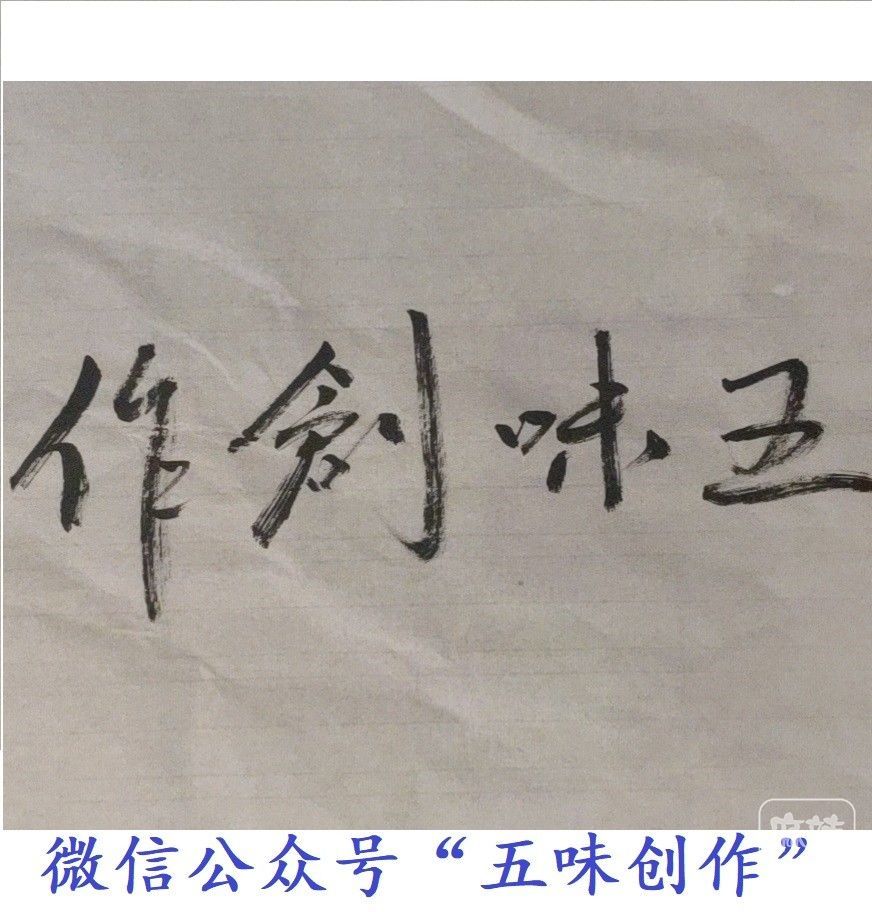 五味創作
微信公众号“五味创作”